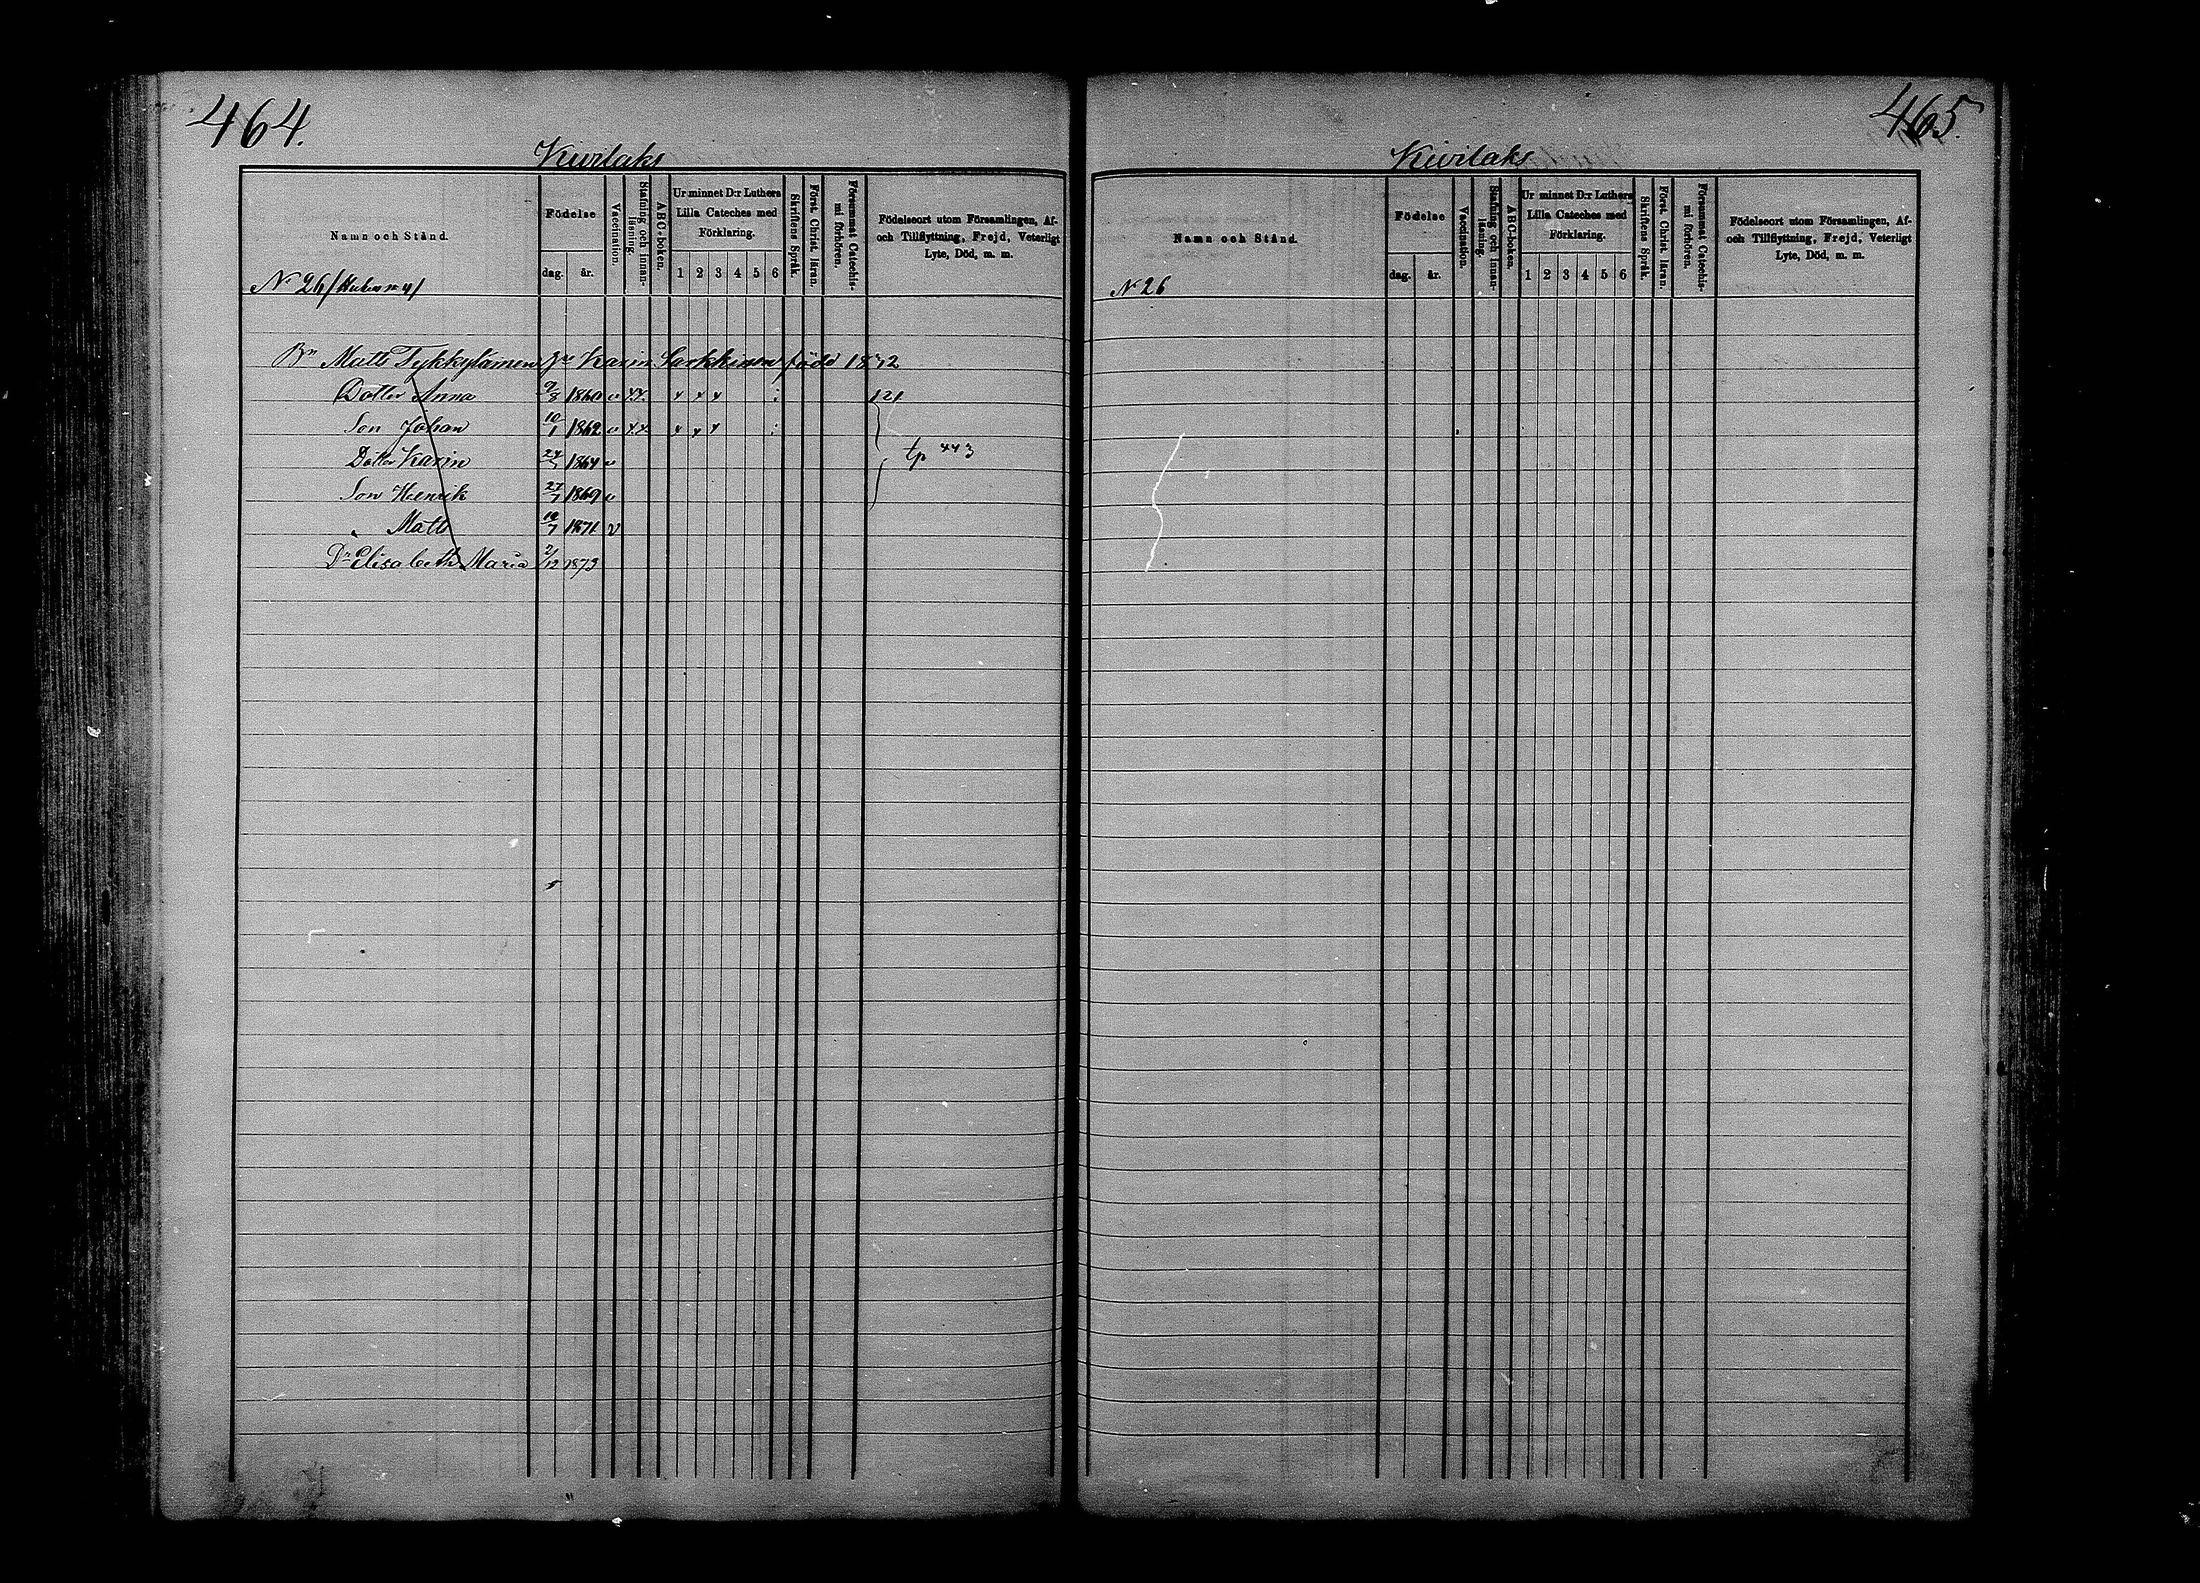 464.
Kivilaks
Namn och Stånd.
Födelse
dag. år.
Vaccination.
Stafning och innanläsning.
ABC-boken.
Ur minnet D:r Luthers Lilla Cateches med Förklaring.
1 2 3 4 5 6
Skriftens Språk.
Först. Christ. läran.
Försummat Catechismi förhören.
Födelseort utom Församlingen, Af- och Tillflyttning, Frejd, Veterligt Lyte, Död, m. m.
N 26
Bn Matts Tykkyläinen Hu Karin född
Dotter Anna 9/8 1860 v
121
Son Johan 10/1 1862 v
Dotter Karin 1864 v
tp 443
Son Henrik 27/7 1869 v
" Matts 1871 v
Dr Elisabeth Maria 2/12 1873
465.
Kivilaks
Namn och Stånd.
Födelse
dag. år.
Vaccination.
Stafning och innanläsning.
ABC-boken.
Ur minnet D:r Luthers Lilla Cateches med Förklaring.
1 2 3 4 5 6
Skriftens Språk.
Först. Christ. läran.
Försummat Catechismi förhören.
Födelseort utom Församlingen, Af- och Tillflyttning, Frejd, Veterligt Lyte, Död, m. m.
N 26